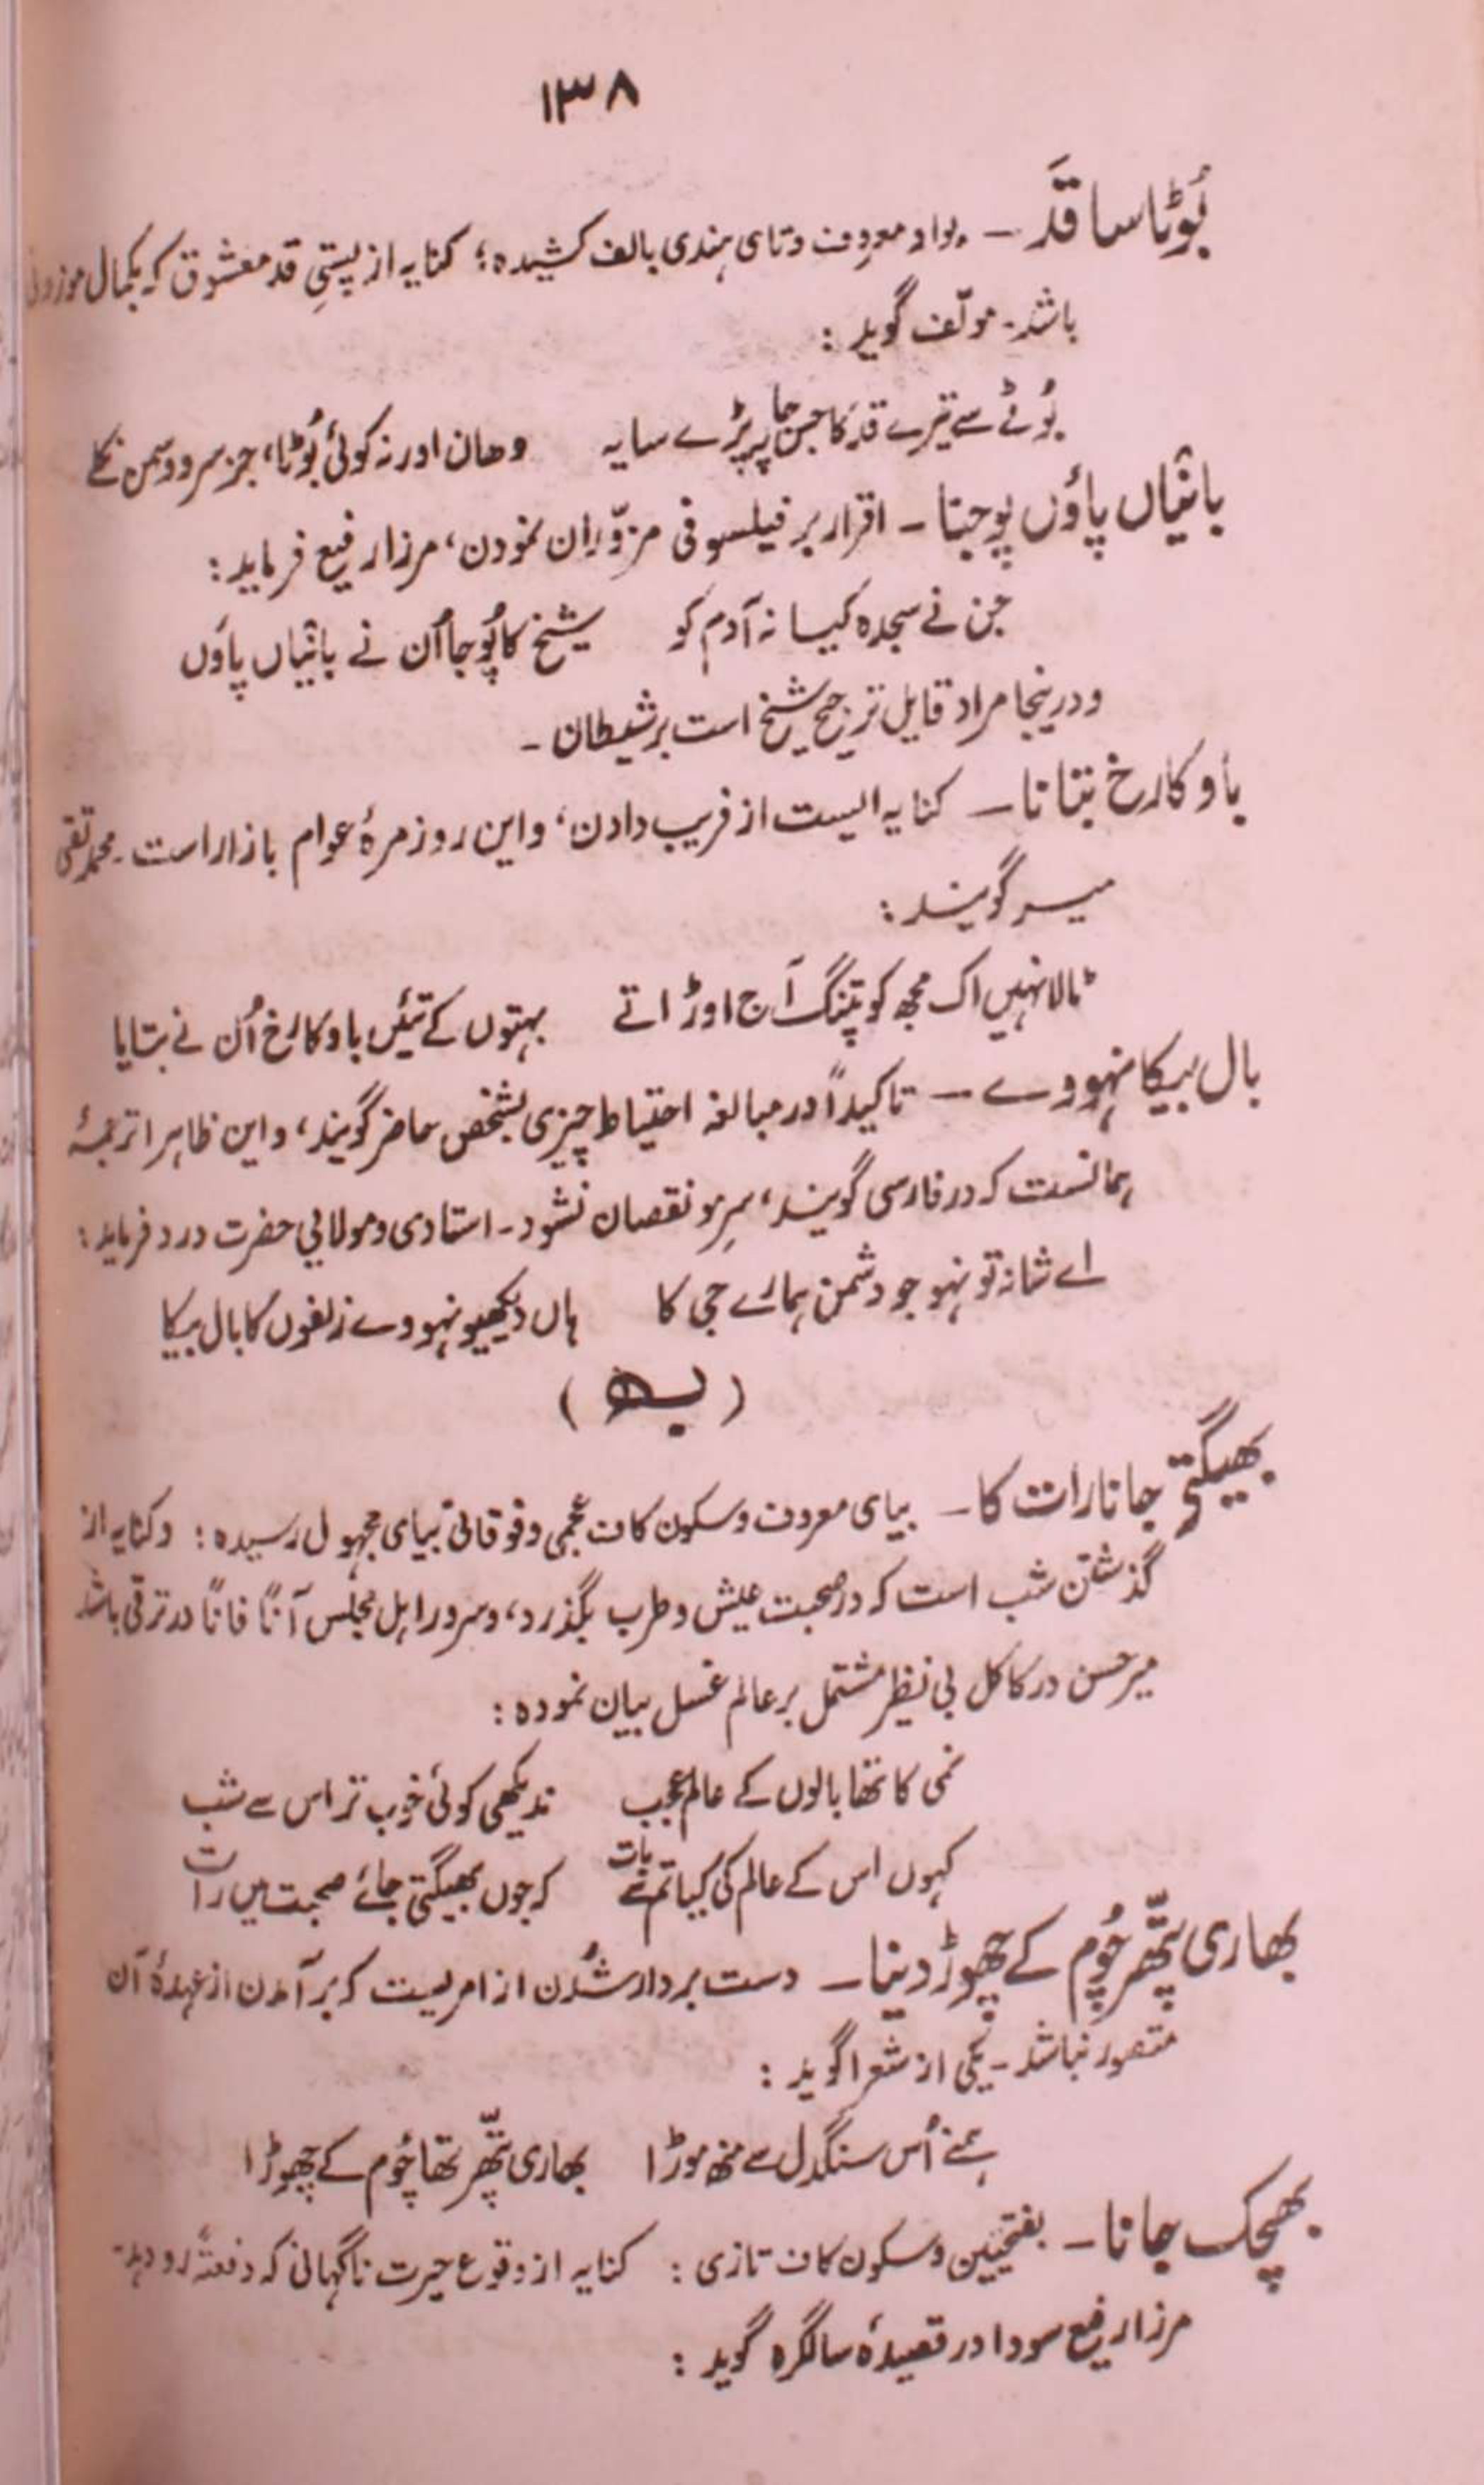 ۱۳۸
بُوٹا سا قَد ۔ بواو معروف و تای ہندی بالف کشیدہ؛ کنایہ از پستیِ قد معشوق کہ بکمال موزونی
باشد۔ مولّف گوید :
بُوٹے سے تیرے قد کا جس جا پر پڑے سایہ وھان اور نہ کوئی بُوٹا، جز سرو و سمن نکلے
بائیاں پاؤں پوجنا ۔ اقرار بر فیلسوفی مزوّران نمودن، مرزا رفیع فرماید :
جن نے سجدہ کیا نہ آدم کو شیخ کا پُوجا اُن نے بائیاں پاوں
و درینجا مراد قایل ترجیح شیخ است بر شیطان ۔
باو کا رخ بتانا ۔ کنایہ ایست از فریب دادن، و این روزمرۂ عوام بازار است ۔ محمد تقی
میر گویند :
ٹالا نہیں اک مجھ کو پتنگ آج اوڑاتے بہتوں کے تئیں باو کا رخ اُن نے بتایا
بال بیکا نہووے ۔ تاکیداً در مبالغہ احتیاط چیزی بشخص حاضر گویند، و این ظاہرا ترجمۂ
ہمانست کہ در فارسی گویند، سرِ مو نقصان نشود ۔ استادی و مولایی حضرت درد فرماید :
اے شانہ تو نہو جو دشمن ہمارے جی کا ہاں دیکھیو نہووے زلفوں کا بال بیکا
( بھ )
بھیگتی جانا رات کا ۔ بیای معروف و سکون کاف عجمی و فوقانی بیای مجہول رسیدہ : و کنایہ از
گذشتن شب است کہ در صحبت عیش و طرب بگذرد، و سرور اہل مجلس آناً فاناً در ترقی باشد
میر حسن در کاکل بی نظیر مشتمل بر عالم غسل بیان نمودہ :
نمی کا تھا بالوں کے عالم عجب ندیکھی کوئی خوب تر اس سے شب
کہوں اس کے عالم کی کیا تم سے بات کہ جوں بھیگتی جائے صحبت میں رات
بھاری پتّھر چُوم کے چھوڑ دینا ۔ دست بردار شدن از امریست کہ برآمدن از عہدۂ آن
متصور نباشد ۔ یکی از شعرا گوید :
ہمنے اُس سنگدل سے منھ موڑا بھاری پتّھر تھا چُوم کے چھوڑا
بھچک جانا ۔ بفتحتین و سکون کاف تازی : کنایہ از وقوع حیرت ناگہانی کہ دفعتہً رو دہد ۔
مرزا رفیع سودا در قصیدۂ سالگرہ گوید :